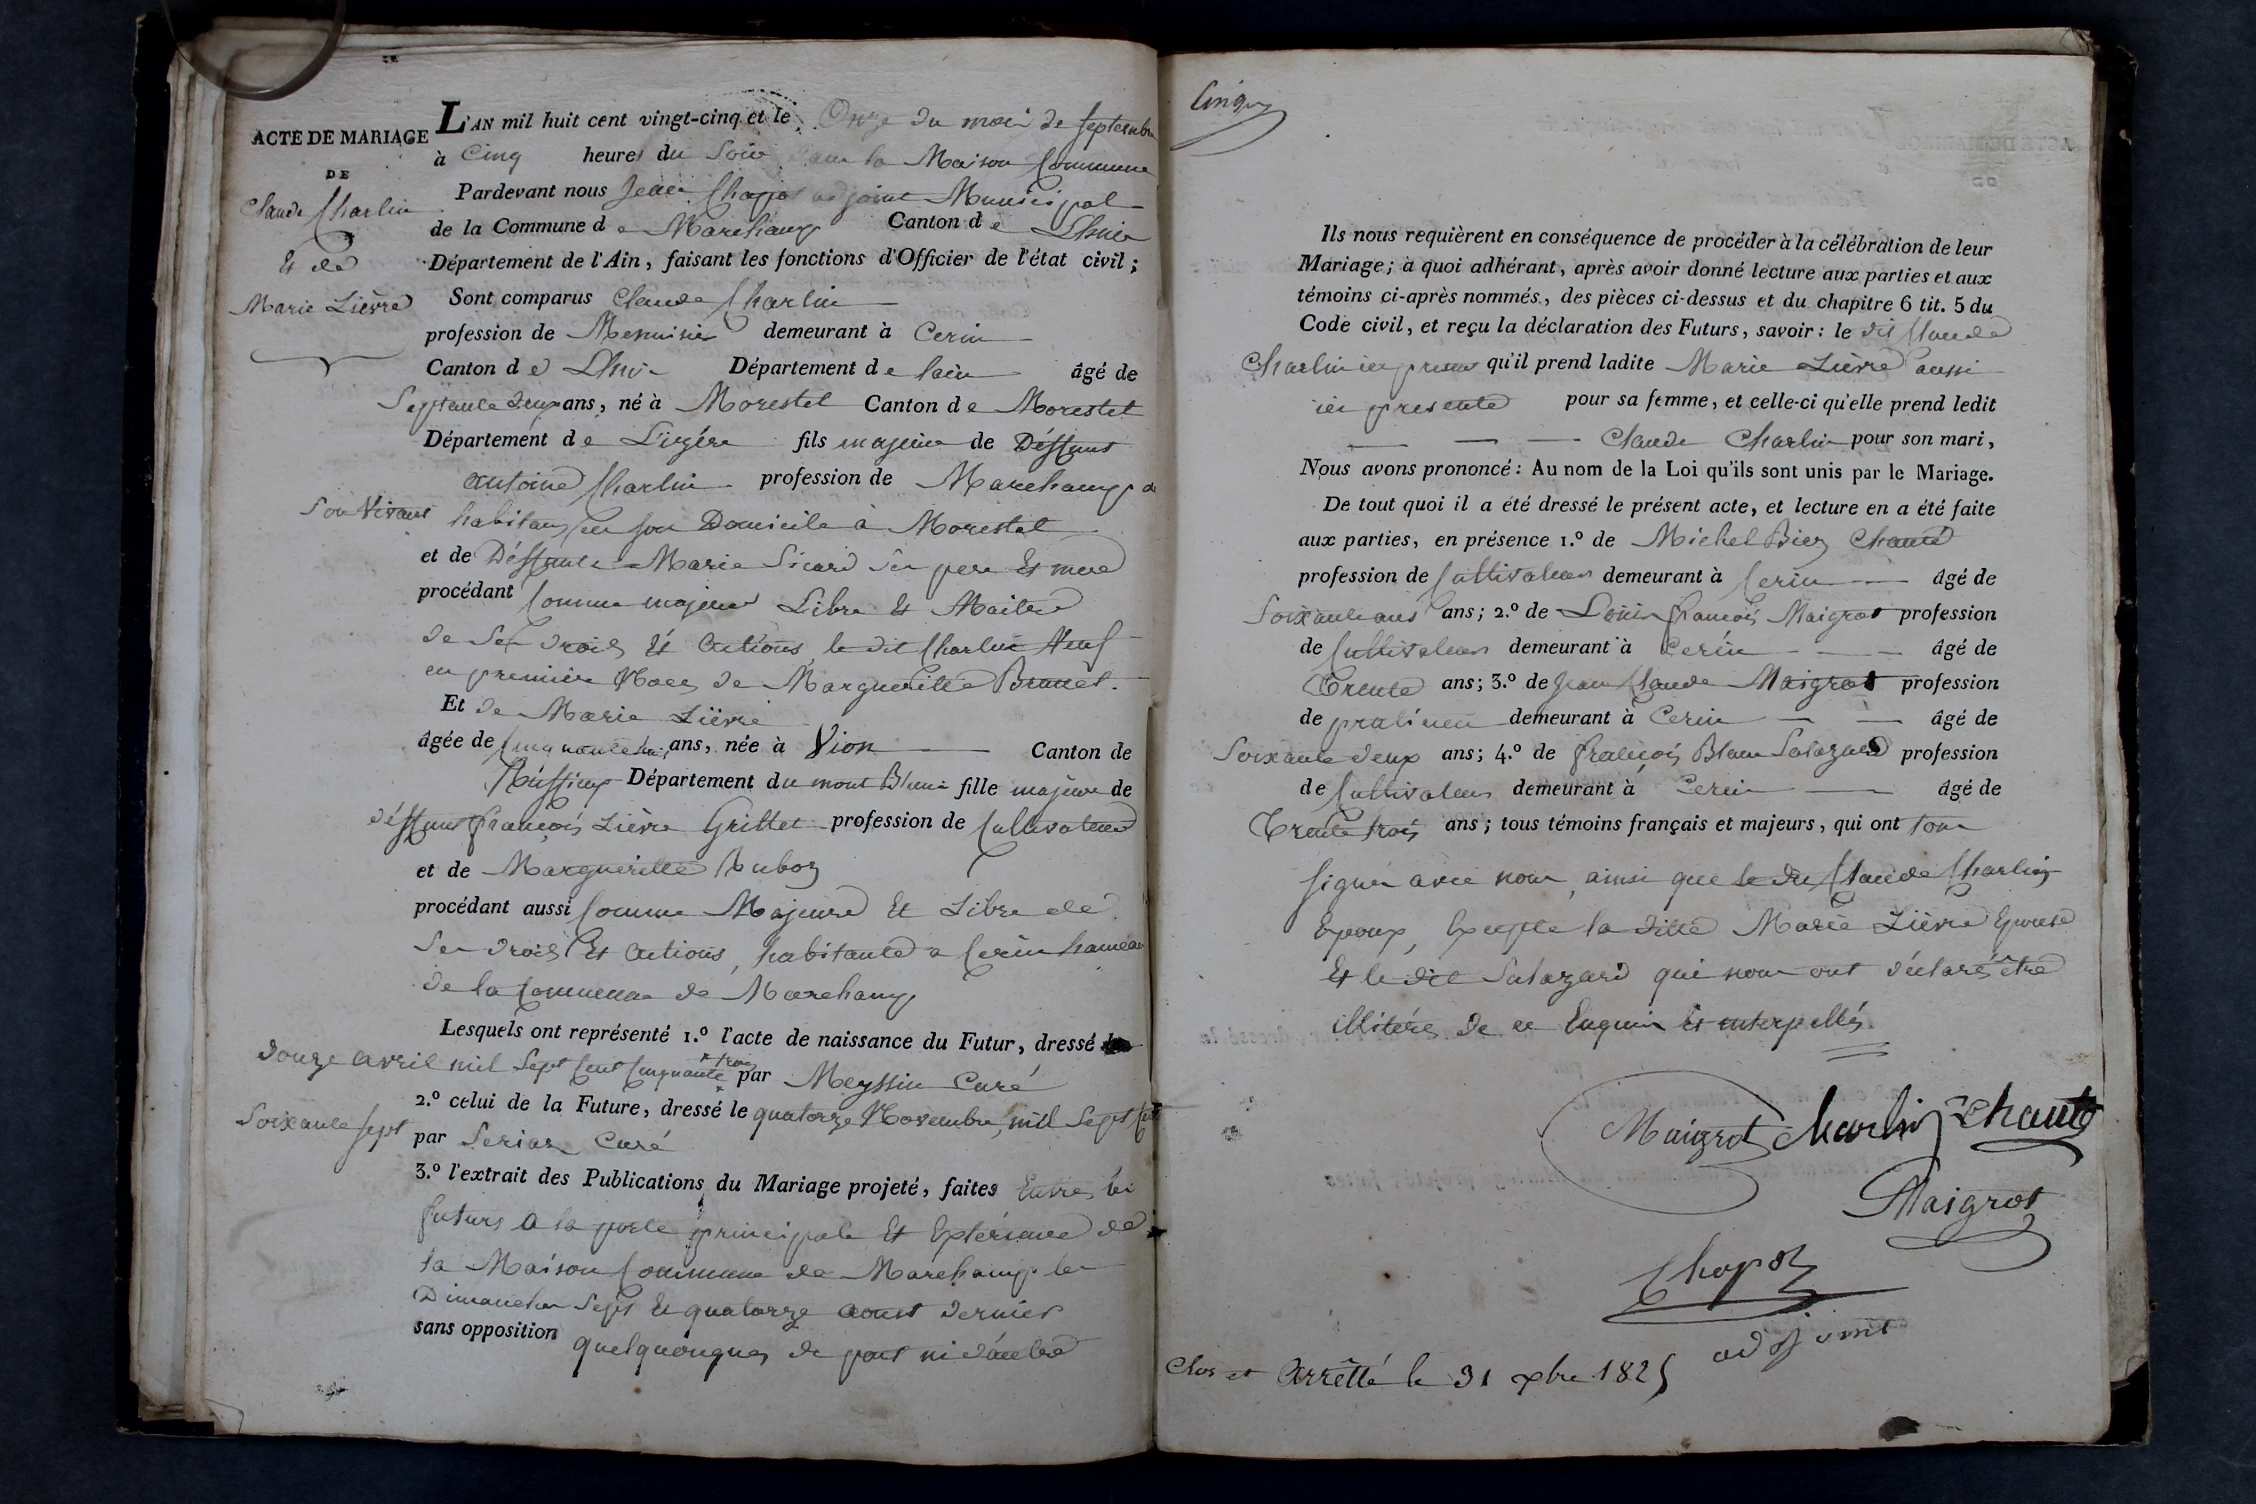 ACTE DE MARIAGE
DE
Claude Charlin
Et de
Marie Lièvre
L'AN mil huit cent vingt-cinq et le Onze du mois de septembre
à Cinq heures du Soir dans la Maison Commune
Pardevant nous Jean Chapot adjoint Municipal
de la Commune de Marchamp Canton de Lhuis
Département de l'Ain, faisant les fonctions d'Officier de l'état civil;
Sont comparus Claude Charlin
profession de Menuisier demeurant à Cerin
Canton de Lhuis Département de lain âgé de
Septante deux ans, né à Morestel Canton de Morestel
Département de L'izére fils majeur de Déffunt
antoine Charlin profession de Marchamp
Son Vivant habitant en son Domicile à Morestel
et de Déffunte Marie Sicard Ses pere Et mere
procédant Comme majeur Libre Et Maitre
de Ses droits Et actions, le dit Charlin Veuf
en première Noces de Margueritte Brunet.
Et de Marie Lièvre
âgée de ans, née à Vion Canton de
Rüffieux Département du mont Blanc fille majeure de
déffunt françois Lièvre Grillet profession de Cultivateur
et de Margueritte Ruboz
procédant aussi Comme Majeure Et Libre de
Ses droits Et actions, habitante a Cerin hameau
de la Commune de Marchamp
Lesquels ont représenté 1.º l'acte de naissance du Futur, dressé
douze avril mil Sept Cent Cinquante trois par Meyssin Curé
2.º celui de la Future, dressé le quatorze Novembre, mil Sept Cent
Soixante sept par Serian Curé
3.º l'extrait des Publications du Mariage projeté, faites Entre les
futurs a la porte principale Et Extérieure de
la Maison Commune de Marchamp les
Dimanches Sept Et quatorze aoust dernier
sans opposition quelquonques de part ni d'autre
Cinq
Ils nous requièrent en conséquence de procéder à la célébration de leur
Mariage; à quoi adhérant, après avoir donné lecture aux parties et aux
témoins ci-après nommés, des pièces ci-dessus et du chapitre 6 tit. 5 du
Code civil, et reçu la déclaration des Futurs, savoir: le dit Claude
Charlin ici present qu'il prend ladite Marie Lièvre aussi
ici presente pour sa femme, et celle-ci qu'elle prend ledit
Claude Charlin pour son mari,
Nous avons prononcé: Au nom de la Loi qu'ils sont unis par le Mariage.
De tout quoi il a été dressé le présent acte, et lecture en a été faite
aux parties, en présence 1.º de Michel Biez Chanté
profession de Cultivateur demeurant à Cerin âgé de
Soixante ans ans; 2.º de Louis françois Maigrot profession
de Cultivateur demeurant à Cerin âgé de
Trente ans; 3.º de Jean Claude Maigrot profession
de praticien demeurant à Cerin âgé de
Soixante deux ans; 4.º de françois Blanc Salazard profession
de Cultivateur demeurant à Cerin âgé de
Trente trois ans; tous témoins français et majeurs, qui ont tous
signés avec nous, ainsi que le dit Claude Charlin
Epoux, Excepté la ditte Marie Lièvre Epouse
Et le dit Salazard qui nous ont déclarés être
illitérés de ce Enquis Et interpellés.
Maigrot Charlin Chanté
Maigrot
Chapot
adjoint
Clos et Arrêtté le 31 xbre 1825